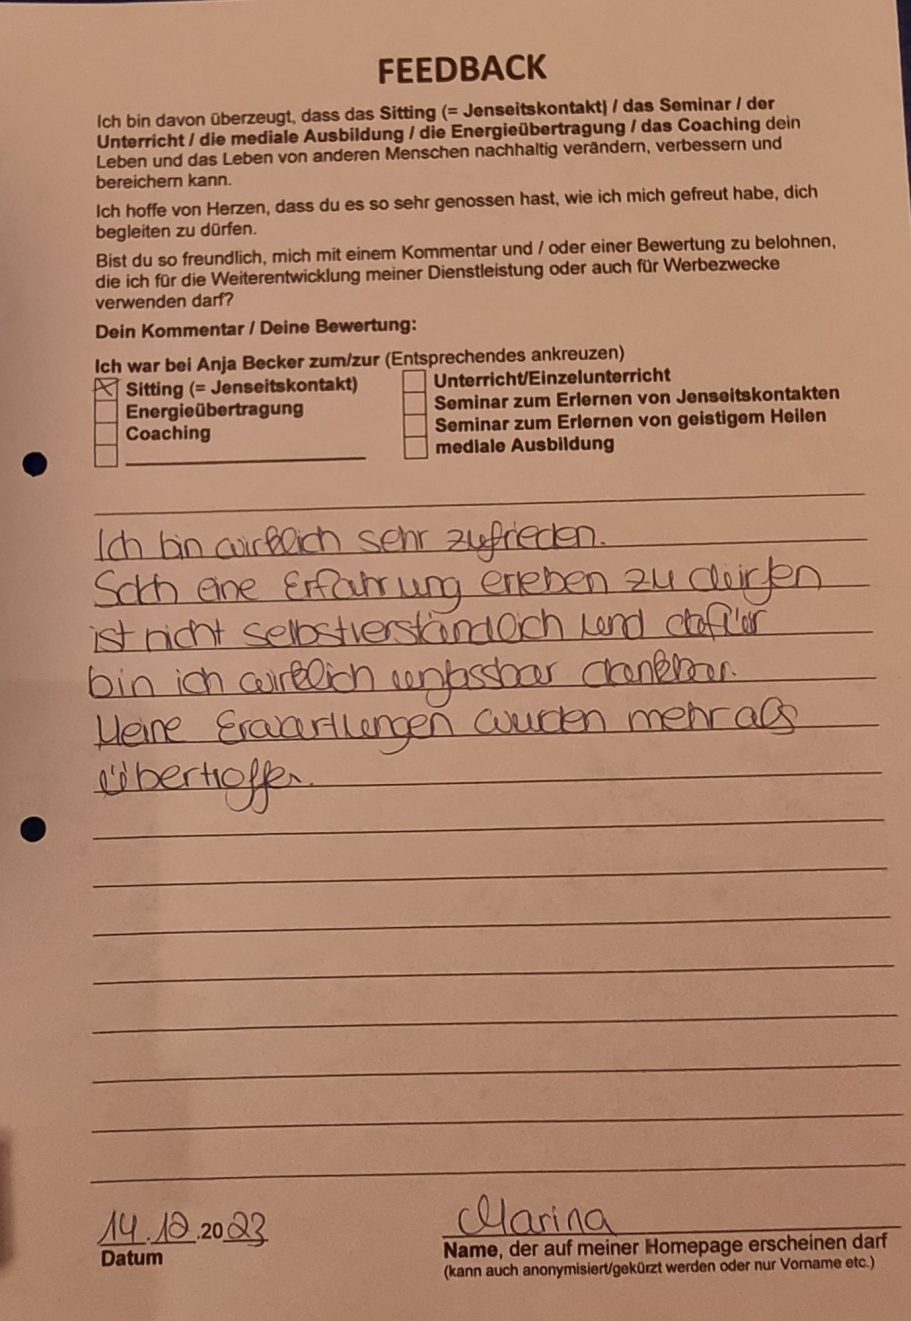 FEEDBACK
Ich bin davon überzeugt, dass das Sitting (= Jenseitskontakt) / das Seminar / der
Unterricht / die mediale Ausbildung / die Energieübertragung / das Coaching dein
Leben und das Leben von anderen Menschen nachhaltig verändern, verbessern und
bereichern kann.
Ich hoffe von Herzen, dass du es so sehr genossen hast, wie ich mich gefreut habe, dich
begleiten zu dürfen.
Bist du so freundlich, mich mit einem Kommentar und / oder einer Bewertung zu belohnen,
die ich für die Weiterentwicklung meiner Dienstleistung oder auch für Werbezwecke
verwenden darf?
Dein Kommentar / Deine Bewertung:
Ich war bei Anja Becker zum/zur (Entsprechendes ankreuzen)
Sitting (= Jenseitskontakt)
Energieübertragung
Coaching
Unterricht/Einzelunterricht
Seminar zum Erlernen von Jenseitskontakten
Seminar zum Erlernen von geistigem Heilen
mediale Ausbildung
Ich bin wirklich sehr zufrieden.
Solch eine Erfahrung erleben zu dürfen
ist nicht selbstverständlich und dafür
bin ich wirklich unfassbar dankbar.
Meine Erwartungen wurden mehr als
übertroffen.
14.12.2023
Datum
Marina
Name, der auf meiner Homepage erscheinen darf
(kann auch anonymisiert/gekürzt werden oder nur Vorname etc.)